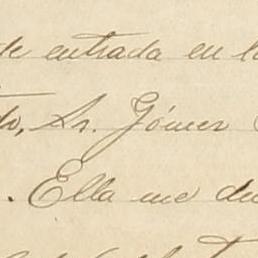 de entrada en l
do, Sr. Gómez
. Ella me d